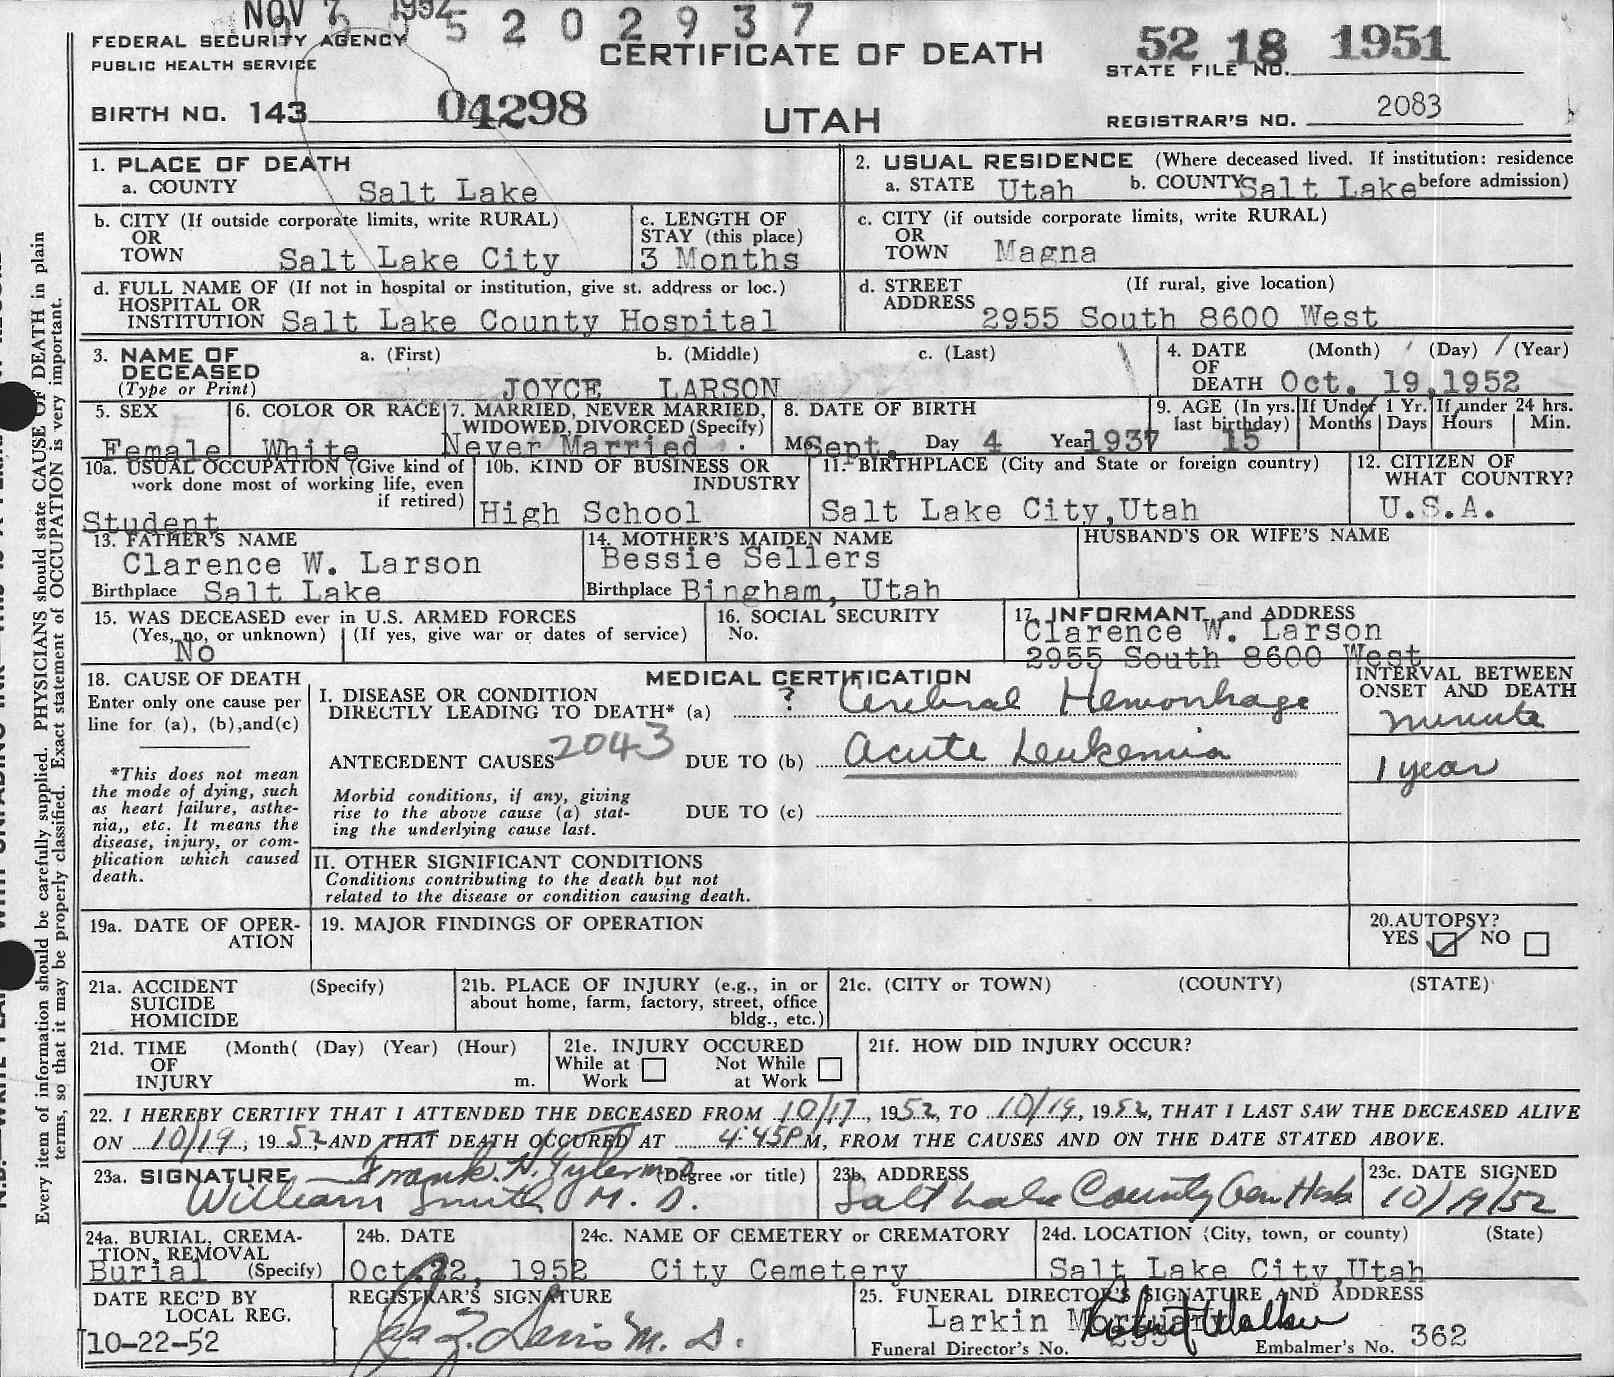 NOV 7 1952
5 2 0 2 9 3 7
FEDERAL SECURITY AGENCY
PUBLIC HEALTH SERVICE
CERTIFICATE OF DEATH
52 18 1951
STATE FILE NO.
BIRTH NO. 143 04298
UTAH
REGISTRAR'S NO. 2083
1. PLACE OF DEATH
a. COUNTY Salt Lake
2. USUAL RESIDENCE (Where deceased lived. If institution: residence
a. STATE Utah b. COUNTY Salt Lake before admission)
b. CITY (If outside corporate limits, write RURAL)
OR
TOWN Salt Lake City
c. LENGTH OF
STAY (this place)
3 Months
c. CITY (if outside corporate limits, write RURAL)
OR
TOWN Magna
d. FULL NAME OF (If not in hospital or institution, give st. address or loc.)
HOSPITAL OR
INSTITUTION Salt Lake County Hospital
d. STREET (If rural, give location)
ADDRESS 2955 South 8600 West
3. NAME OF a. (First) b. (Middle) c. (Last)
DECEASED
(Type or Print) JOYCE LARSON
4. DATE (Month) (Day) (Year)
OF
DEATH Oct. 19,1952
5. SEX
Female
6. COLOR OR RACE
White
7. MARRIED, NEVER MARRIED,
WIDOWED, DIVORCED (Specify)
Never Married
8. DATE OF BIRTH
Mo. Sept. Day 4 Year 1937
9. AGE (In yrs.
last birthday)
15
If Under 1 Yr.
Months Days
If under 24 hrs.
Hours Min.
10a. USUAL OCCUPATION (Give kind of
work done most of working life, even
if retired)
Student
10b. KIND OF BUSINESS OR
INDUSTRY
High School
11. BIRTHPLACE (City and State or foreign country)
Salt Lake City,Utah
12. CITIZEN OF
WHAT COUNTRY?
U.S.A.
13. FATHER'S NAME
Clarence W. Larson
Birthplace Salt Lake
14. MOTHER'S MAIDEN NAME
Bessie Sellers
Birthplace Bingham, Utah
HUSBAND'S OR WIFE'S NAME
15. WAS DECEASED ever in U.S. ARMED FORCES
(Yes, no, or unknown) (If yes, give war or dates of service)
No
16. SOCIAL SECURITY
No.
17. INFORMANT and ADDRESS
Clarence W. Larson
2955 South 8600 West
18. CAUSE OF DEATH
Enter only one cause per
line for (a), (b),and(c)
*This does not mean
the mode of dying, such
as heart failure, asthe-
nia,, etc. It means the
disease, injury, or com-
plication which caused
death.
MEDICAL CERTIFICATION
I. DISEASE OR CONDITION
DIRECTLY LEADING TO DEATH* (a) ? Cerebral Hemorrhage
ANTECEDENT CAUSES 2043 DUE TO (b) Acute Leukemia
Morbid conditions, if any, giving
rise to the above cause (a) stat-
ing the underlying cause last.
DUE TO (c)
INTERVAL BETWEEN
ONSET AND DEATH
minute
1 year
II. OTHER SIGNIFICANT CONDITIONS
Conditions contributing to the death but not
related to the disease or condition causing death.
19a. DATE OF OPER-
ATION
19. MAJOR FINDINGS OF OPERATION
20.AUTOPSY?
YES NO
21a. ACCIDENT (Specify)
SUICIDE
HOMICIDE
21b. PLACE OF INJURY (e.g., in or
about home, farm, factory, street, office
bldg., etc.)
21c. (CITY or TOWN) (COUNTY) (STATE)
21d. TIME (Month( (Day) (Year) (Hour)
OF
INJURY m.
21e. INJURY OCCURED
While at Not While
Work at Work
21f. HOW DID INJURY OCCUR?
22. I HEREBY CERTIFY THAT I ATTENDED THE DECEASED FROM 10/17, 1952, TO 10/19, 1952, THAT I LAST SAW THE DECEASED ALIVE
ON 10/19, 1952 AND THAT DEATH OCCURED AT 4:45P M, FROM THE CAUSES AND ON THE DATE STATED ABOVE.
23a. SIGNATURE Frank H. Tyler M.D. (Degree or title)
William Smith M. D.
23b. ADDRESS
Salt Lake County Gen Hosp
23c. DATE SIGNED
10/19/52
24a. BURIAL, CREMA-
TION, REMOVAL
Burial (Specify)
24b. DATE
Oct.22, 1952
24c. NAME OF CEMETERY OR CREMATORY
City Cemetery
24d. LOCATION (City, town, or county) (State)
Salt Lake City,Utah
DATE REC'D BY
LOCAL REG.
10-22-52
REGISTRAR'S SIGNATURE
M. D.
25. FUNERAL DIRECTOR'S SIGNATURE AND ADDRESS
Larkin Mortuary
Funeral Director's No. Embalmer's No. 362
Every item of information should be carefully supplied. PHYSICIANS should state CAUSE OF DEATH in plain
terms, so that it may be properly classified. Exact statement of OCCUPATION is very important.